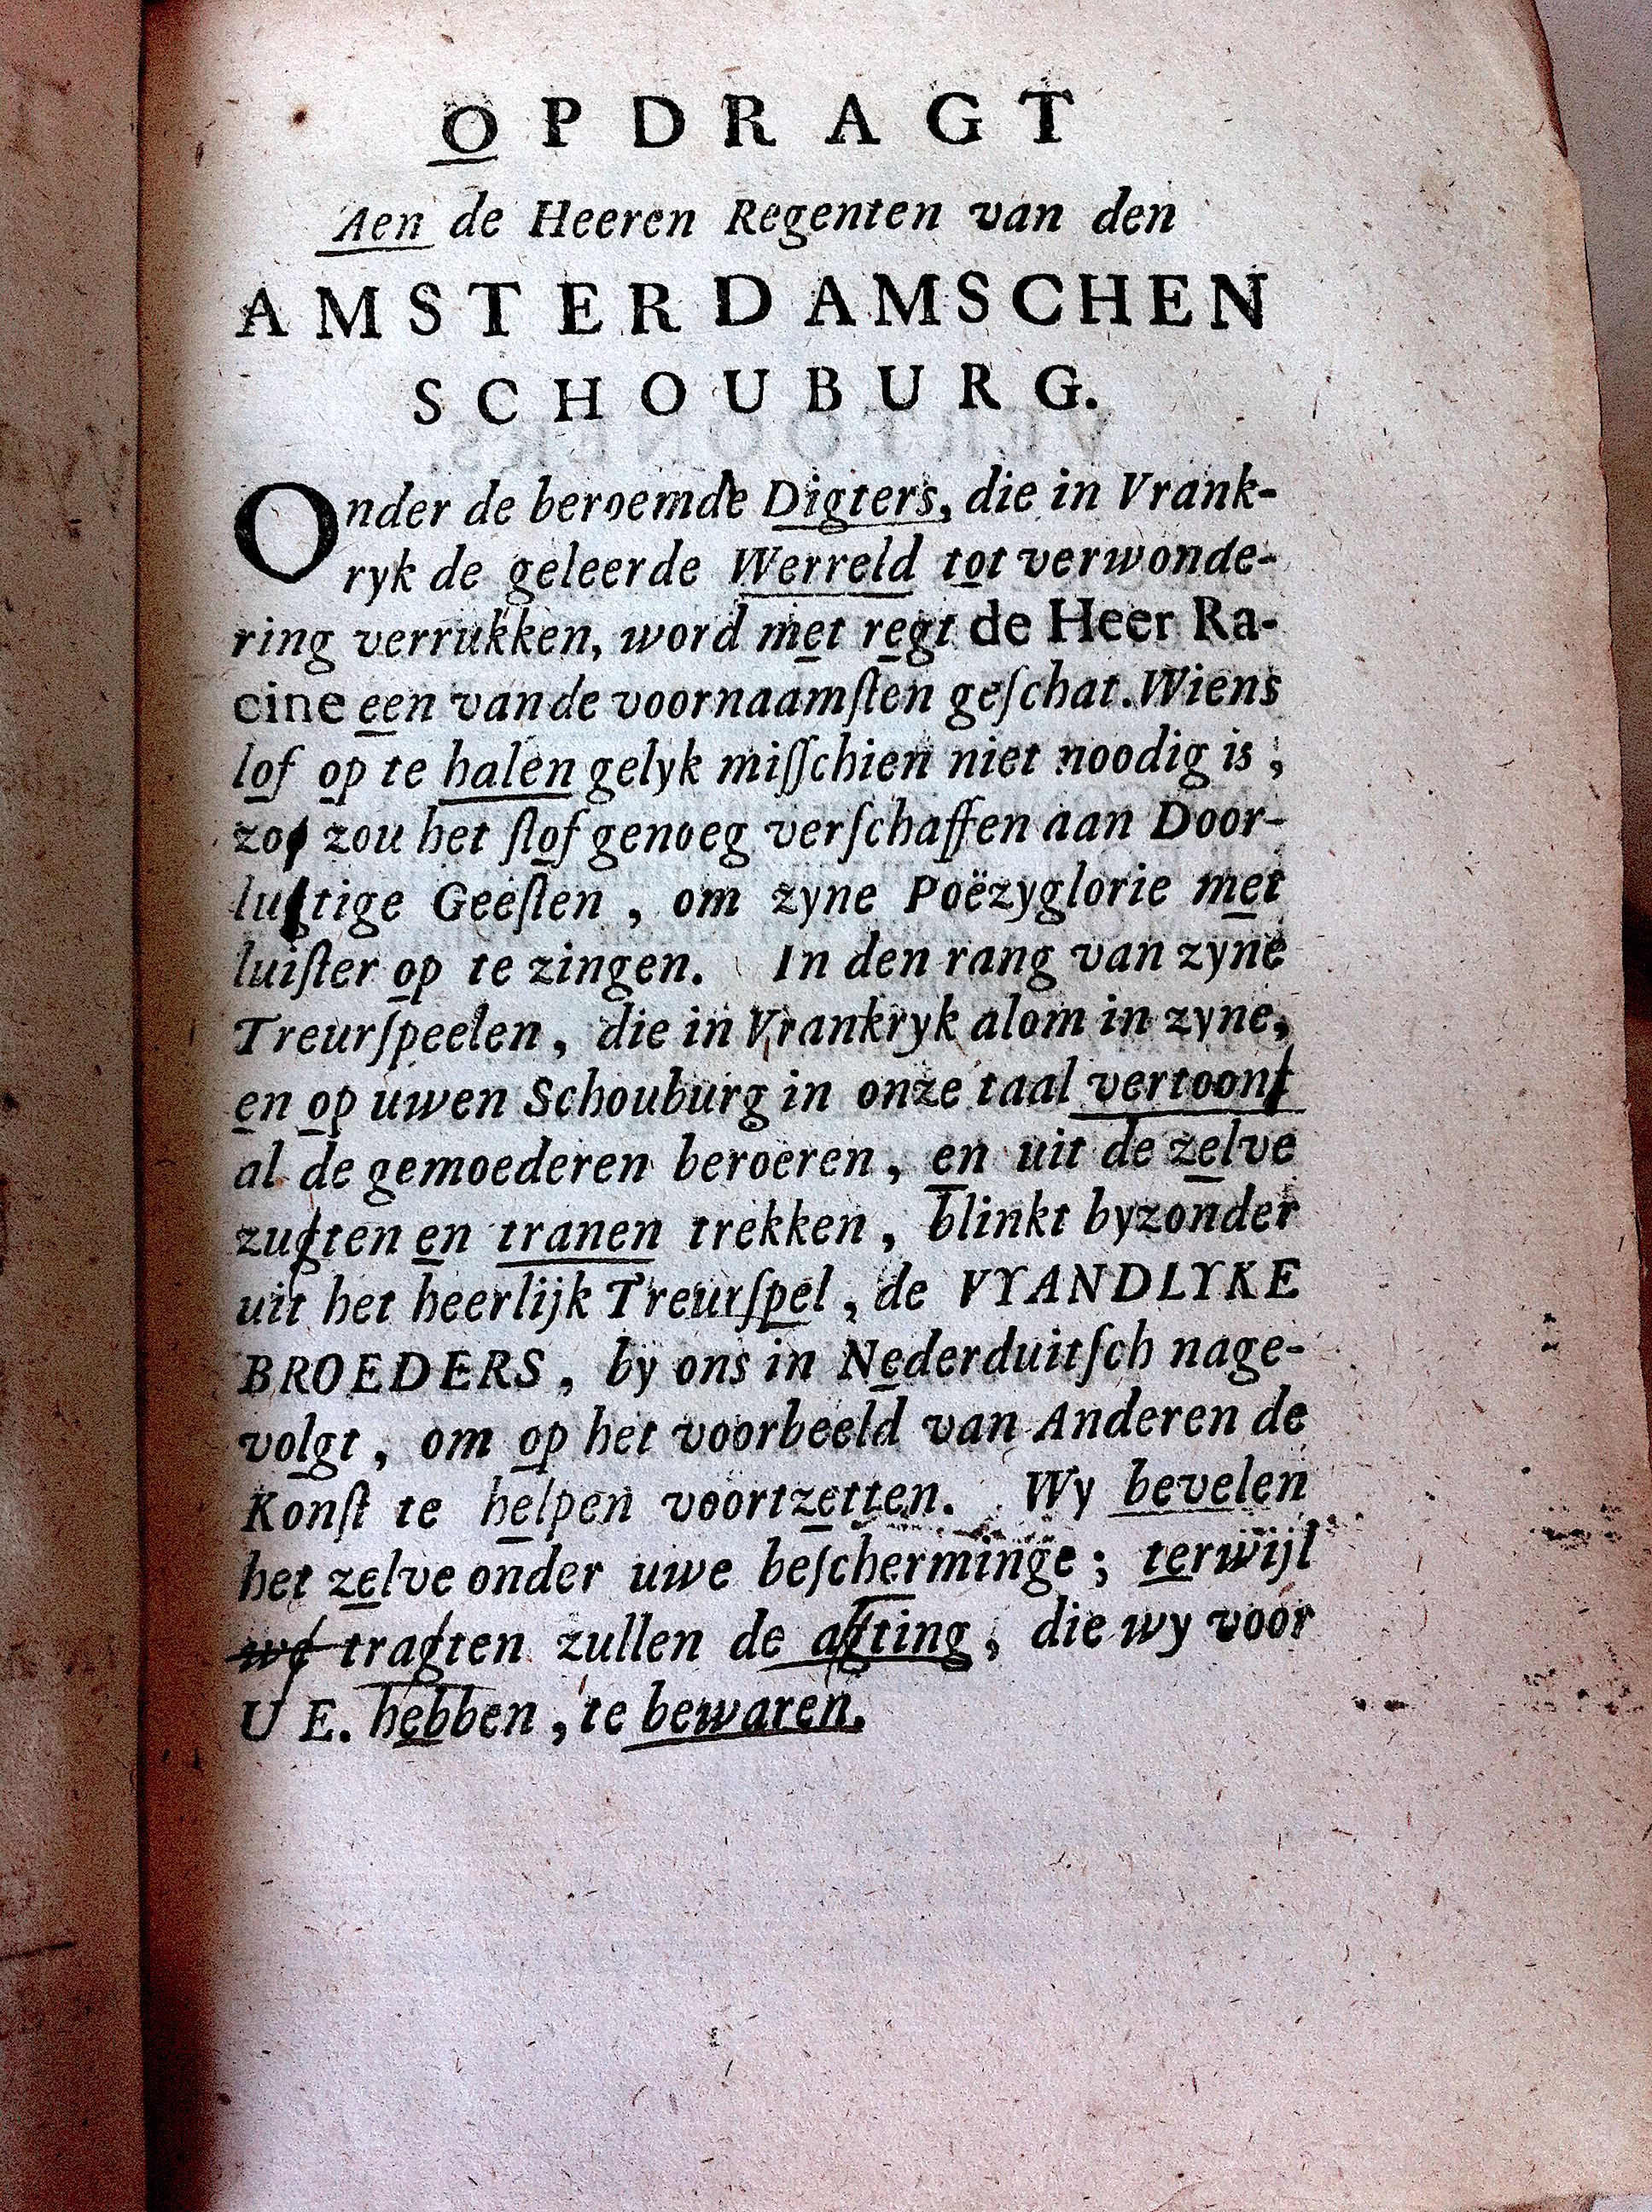 OPDRAGT
Aen de Heeren Regenten van den
AMSTERDAMSCHEN
SCHOUBURG.
Onder de beroemde Digters, die in Vrank-
ryk de geleerde Werreld tot verwonde-
ring verrukken, word met regt de Heer Ra-
cine een van de voornaamſten geſchat. Wiens
lof op te halen gelyk miſſchien niet noodig is,
zo zou het ſtof genoeg verſchaffen aan Door-
lugtige Geeſten, om zyne Poëzyglorie met
luiſter op te zingen. In den rang van zyne
Treurſpeelen, die in Vrankryk alom in zyne,
en op uwen Schouburg in onze taal vertoont
al de gemoederen beroeren, en uit de zelve
zugten en tranen trekken, blinkt byzonder
uit het heerlijk Treurſpel, de VYANDLYKE
BROEDERS, by ons in Nederduitſch nage-
volgt, om op het voorbeeld van Anderen de
Konſt te helpen voortzetten. Wy bevelen
het zelve onder uwe beſcherminge; terwijl
we tragten zullen de agting, die wy voor
U E. hebben, te bewaren.